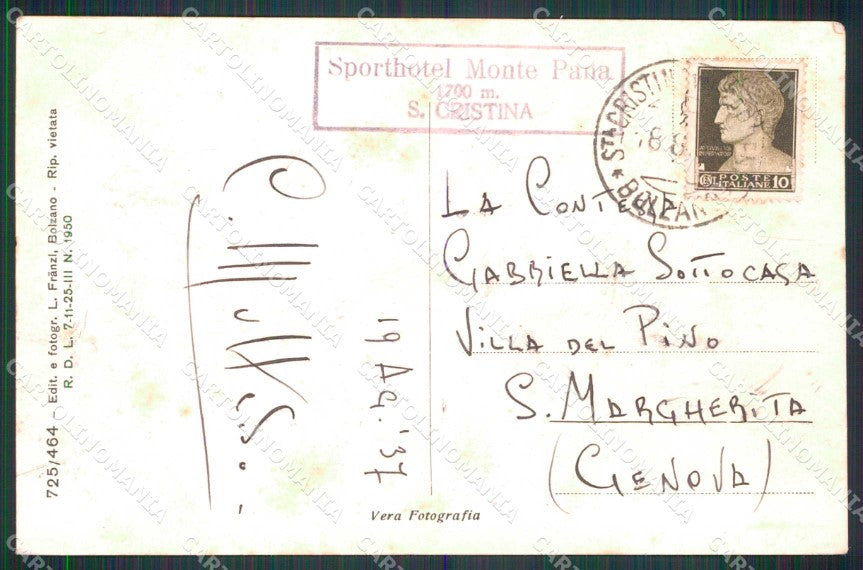 Sporthotel Monte Pana
1700 m.
S. CRISTINA
POSTE
ITALIANE
CENT. 10
LA CONTESSA
GABRIELLA SOTTOCASA
VILLA DEL PINO
S. MARGHERITA
(GENOVA)
19 Ag. '37
Vera Fotografia
725/464 - Edit. e fotogr. L. Fränzl, Bolzano - Rip. vietata
R. D. L. 7-11-25-III N. 1950
CARTOLINOMANIA